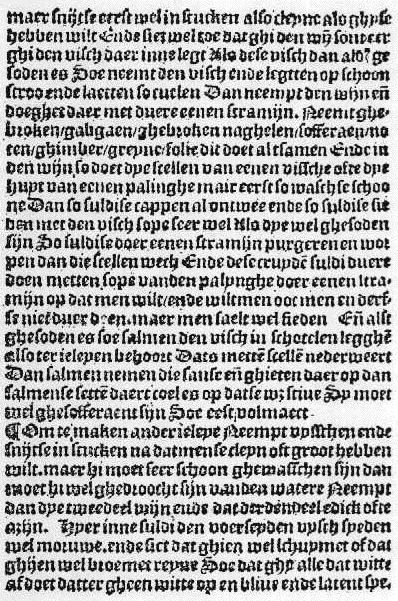 maer snijtse eerst wel in stucken also cleyne als ghijse
hebben wilt Ende siet wel toe dat ghi den wijn souteer
ghi den visch daer inne legt Als dese visch dan als? ge
soden es Soe neemt den visch ende legtten op schoon
stroo ende laetten so cuelen Dan neempt den wijn eñ
doeghet daer met duere eenen stramijn. Neemt ghe-
broken/galigaen/ghebroken naghelen/sofferaen/no
ten/ghimber/greyne/folie dit doet al tsamen Ende in
den wijn so doet dye scellen van eenen vissche oft dye
huyt van eenen palinghe mair eerst so wasch se schoo
ne Dan so suldise cappen al ontwee ende so suldise sie
den met den visch sope seer wel Als dye wel ghesoden
sijn So suldise doer eenen stramijn purgeren en wor
pen dan die scellen wech Ende dese cruydē suldi duere
doen metten sope vanden palynghe doer eenen stra-
mijn op dat men wilt/ende wilt men oot men en derf-
se niet duer doen. maer men saelt wel sieden Eñ alst
ghesoden es soe salmen den visch in schotelen legghē
also ter ieleyen behoort Dats mettē scellē nederweert
Dan salmen nemen die sause eñ ghieten daer op dan
salmense settē daert coel es op datse wzstiue Sy moet
wel ghesofferaent sijn Soe eest volmaect.
¶ Om te maken ander ieleye Neempt vysschen ende
snijtse in stucken na datmense cleyn oft groot hebben
wilt. maer hi moet seer schoon ghewasschen sijn dan
moet hi wel ghedroocht sijn vanden watere Neempt
dan dye tweedeel wijn ende dat derdendeel edick ofte
azijn. Hyer inne suldi den voerseyden vysch syeden
wel moruwe. ende siet dat ghien wel schuymet of dat
ghijen wel broemet reyne Soe dat ghy alle dat witte
af doet datter gheen witte op en bliue ende latent spe.